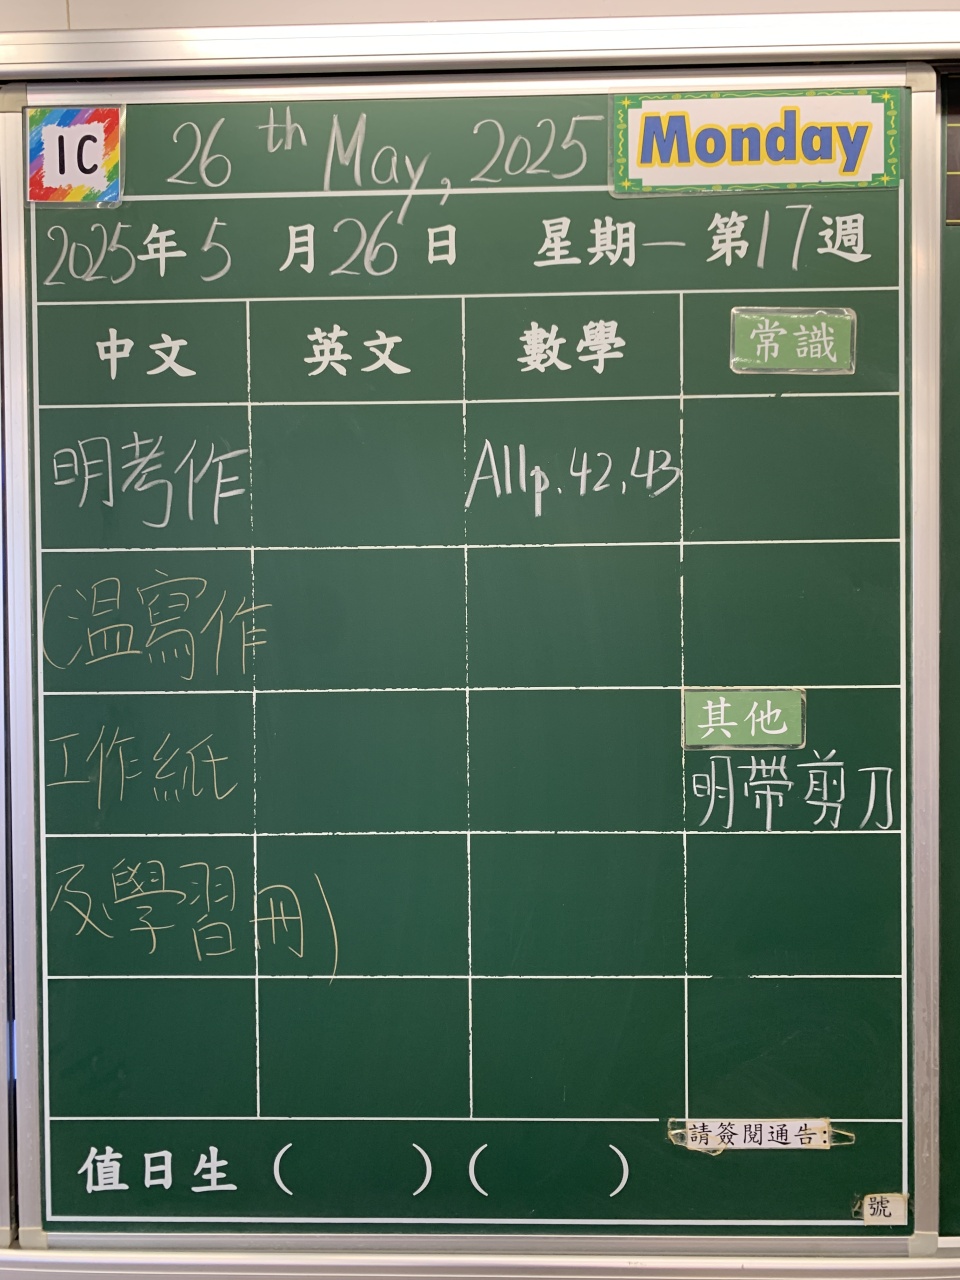 1C 26th May, 2025 Monday
2025年5月26日 星期一 第17週
中文 英文 數學 常識
明考作 Allp.42,43
(温寫作
工作紙 其他
明帶剪刀
及學習冊)
值日生 ( ) ( ) 請簽閱通告:
號